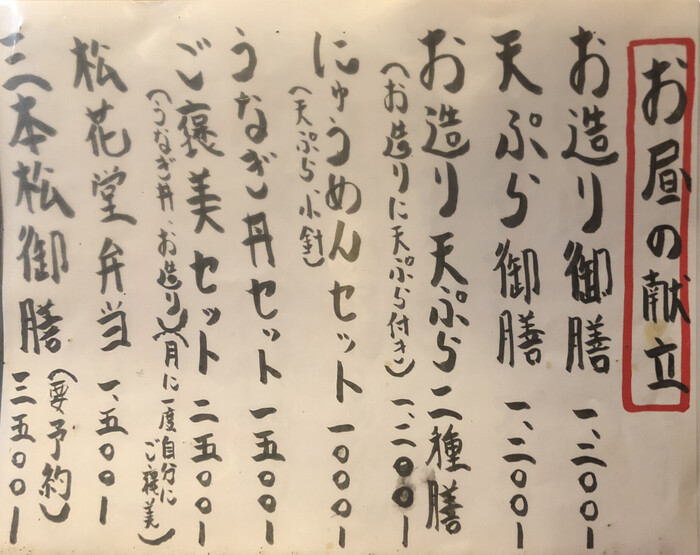 お昼の献立
お造り御膳 一、二〇〇ー
天ぷら御膳 一、二〇〇ー
お造り天ぷら二種膳
(お造りに天ぷら付き) 一、二〇〇ー
にゅうめんセット 一〇〇〇ー
(天ぷら小針)
うなぎ丼セット 一五〇〇ー
ご褒美セット 二五〇〇ー
(うなぎ丼、お造り)(月に一度自分にご褒美)
松花堂弁当 一、五〇〇ー
三本松御膳 三五〇〇ー
(要予約)